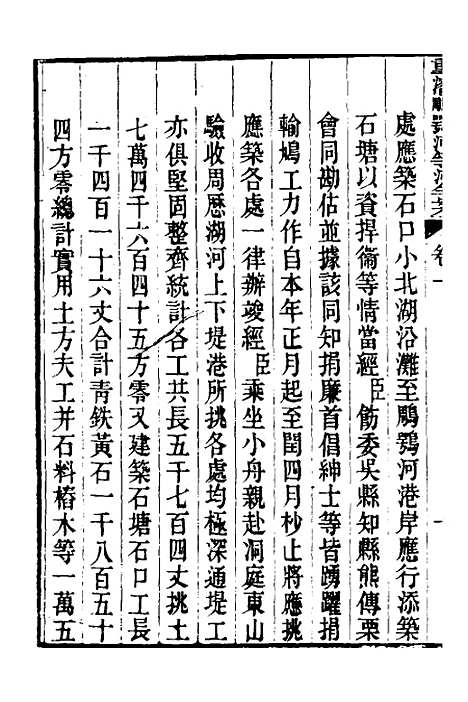 重濬鶥鶚河等河全案 卷一
處應築石口小北湖沿灘至鶥鶚河港岸應行添築
石塘以資捍衛等情當經臣飭委吳縣知縣熊傳栗
會同勘估並據該同知捐廉首倡紳士等皆踴躍捐
輸鳩工力作自本年正月起至閏四月杪止將應挑
應築各處一律辦竣經臣乘坐小舟親赴洞庭東山
驗收周歷湖河上下堤港所挑各處均極深通堤工
亦俱堅固整齊統計各工共長五千七百四丈挑土
七萬四千六百四十五方零又建築石塘石口工長
一千四百一十六丈合計青鉄黃石一千八百五十
四方零總計實用土方夫工并石料樁木等一萬五